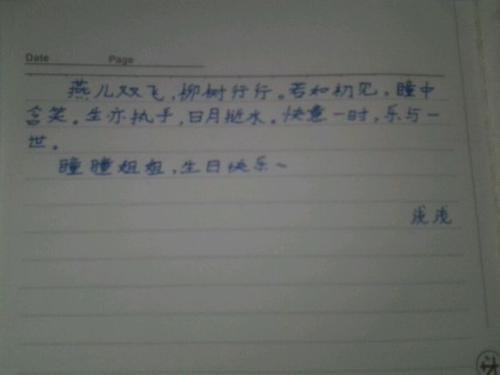 Date Page
燕儿双飞，柳树行行。若如初见，瞳中
含笑。生亦执手，日月挺水。快意一时，乐与一
世。
瞳瞳姐姐，生日快乐~
浅浅